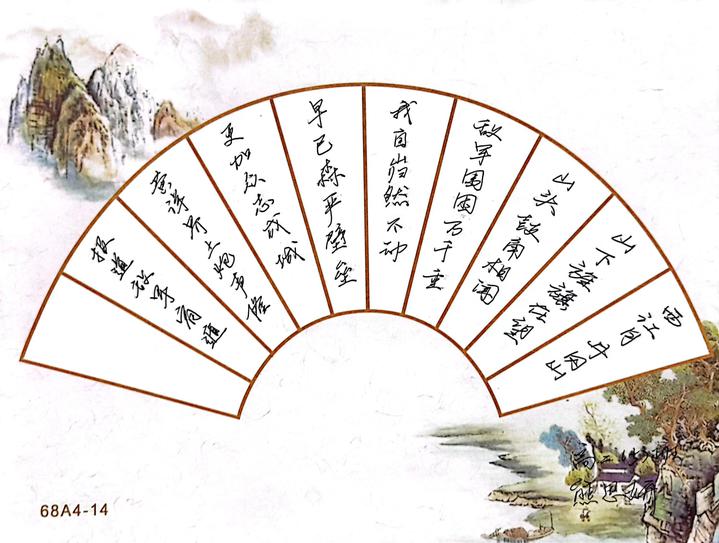 西江月 井冈山
山下旌旗在望
山头鼓角相闻
敌军围困万千重
我自岿然不动
早已森严壁垒
更加众志成城
黄洋界上炮声隆
报道敌军宵遁
高二
熊思
68A4-14